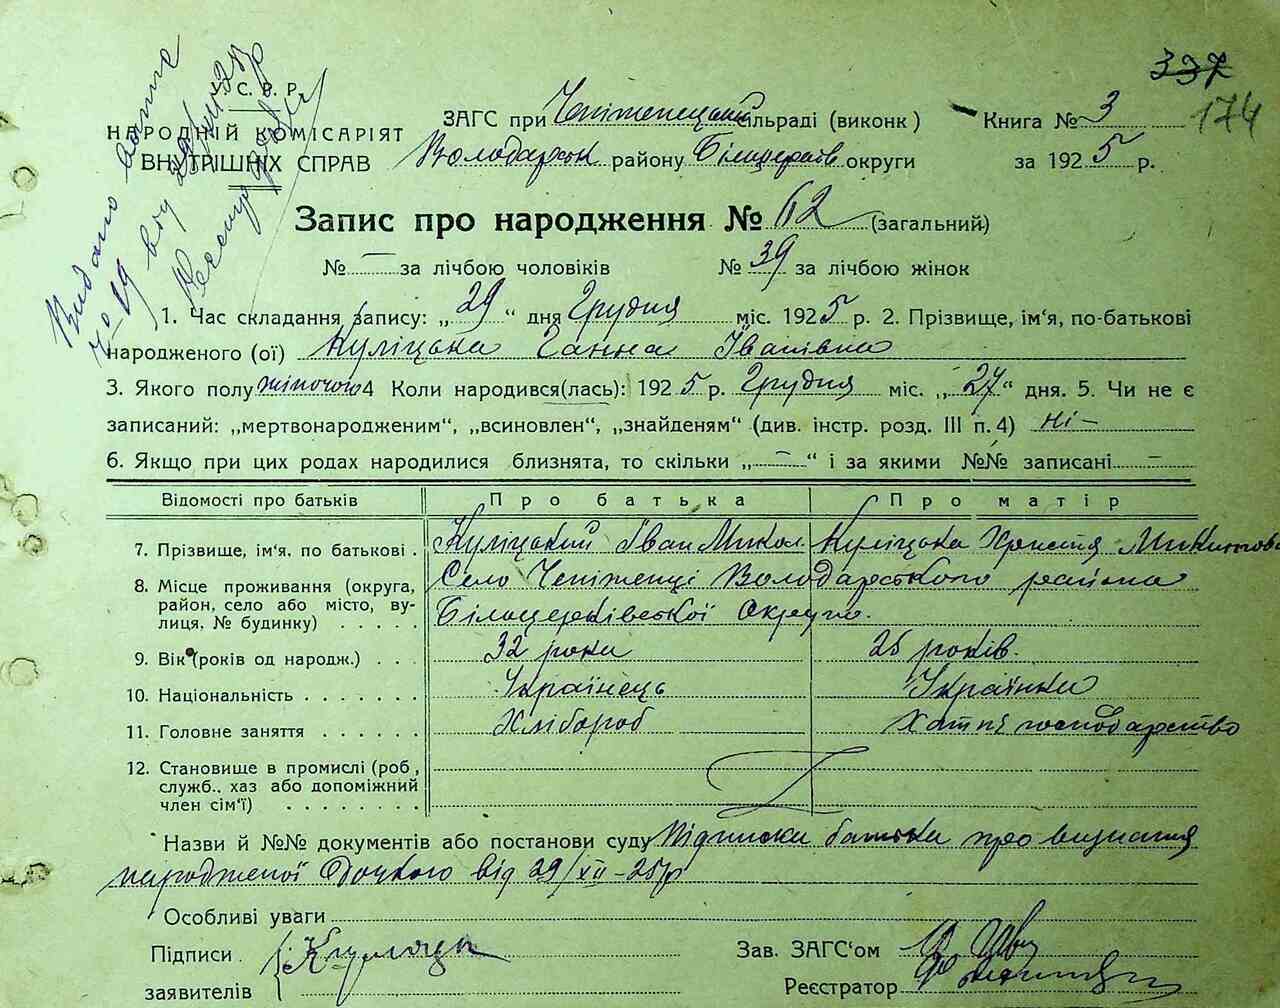 337
174
У. С. Р. Р.
НАРОДНІЙ КОМІСАРІЯТ
ВНУТРІШНІХ СПРАВ
ЗАГС при сільраді (виконк)
Володарськ району Білоцерків округи
Книга № 3
за 1925 р.
Видано
Запис про народження № 62 (загальний)
№ — за лічбою чоловіків № 39 за лічбою жінок
1. Час складання запису: „29" дня Грудня міс. 1925 р. 2. Прізвище, ім'я, по-батькові
народженого (ої) Куліцька Ганна Іванівна
3. Якого полу жіночого 4 Коли народився(лась): 1925 р. Грудня міс. „27" дня. 5. Чи не є
записаний: „мертвонародженим", „всиновлен", „знайденям" (див. інстр. розд. III п. 4) ні —
6. Якщо при цих родах народилися близнята, то скільки „—" і за якими №№ записані —
Відомості про батьків Про батька Про матір
7. Прізвище, ім'я, по батькові . Куліцький Іван Микол. Куліцька Христя
8. Місце проживання (округа, район, село або місто, вулиця, № будинку) . . . . . Село Чепіженці Володарського района
Білоцерківської Округи.
9. Вік (років од народж.) . . . 32 роки 25 років.
10. Національність . . . . . . . Українець Українка
11. Головне заняття . . . . . . Хлібороб Хатнє господарство
12. Становище в промислі (роб, служб.. хаз або допоміжний член сім'ї) . . . . . . . .
Назви й №№ документів або постанови суду Підписки батька про визнання
народженої дочкою від 29/XII-25 р
Особливі уваги
Підписи
заявителів
Зав. ЗАГС'ом
Реєстратор